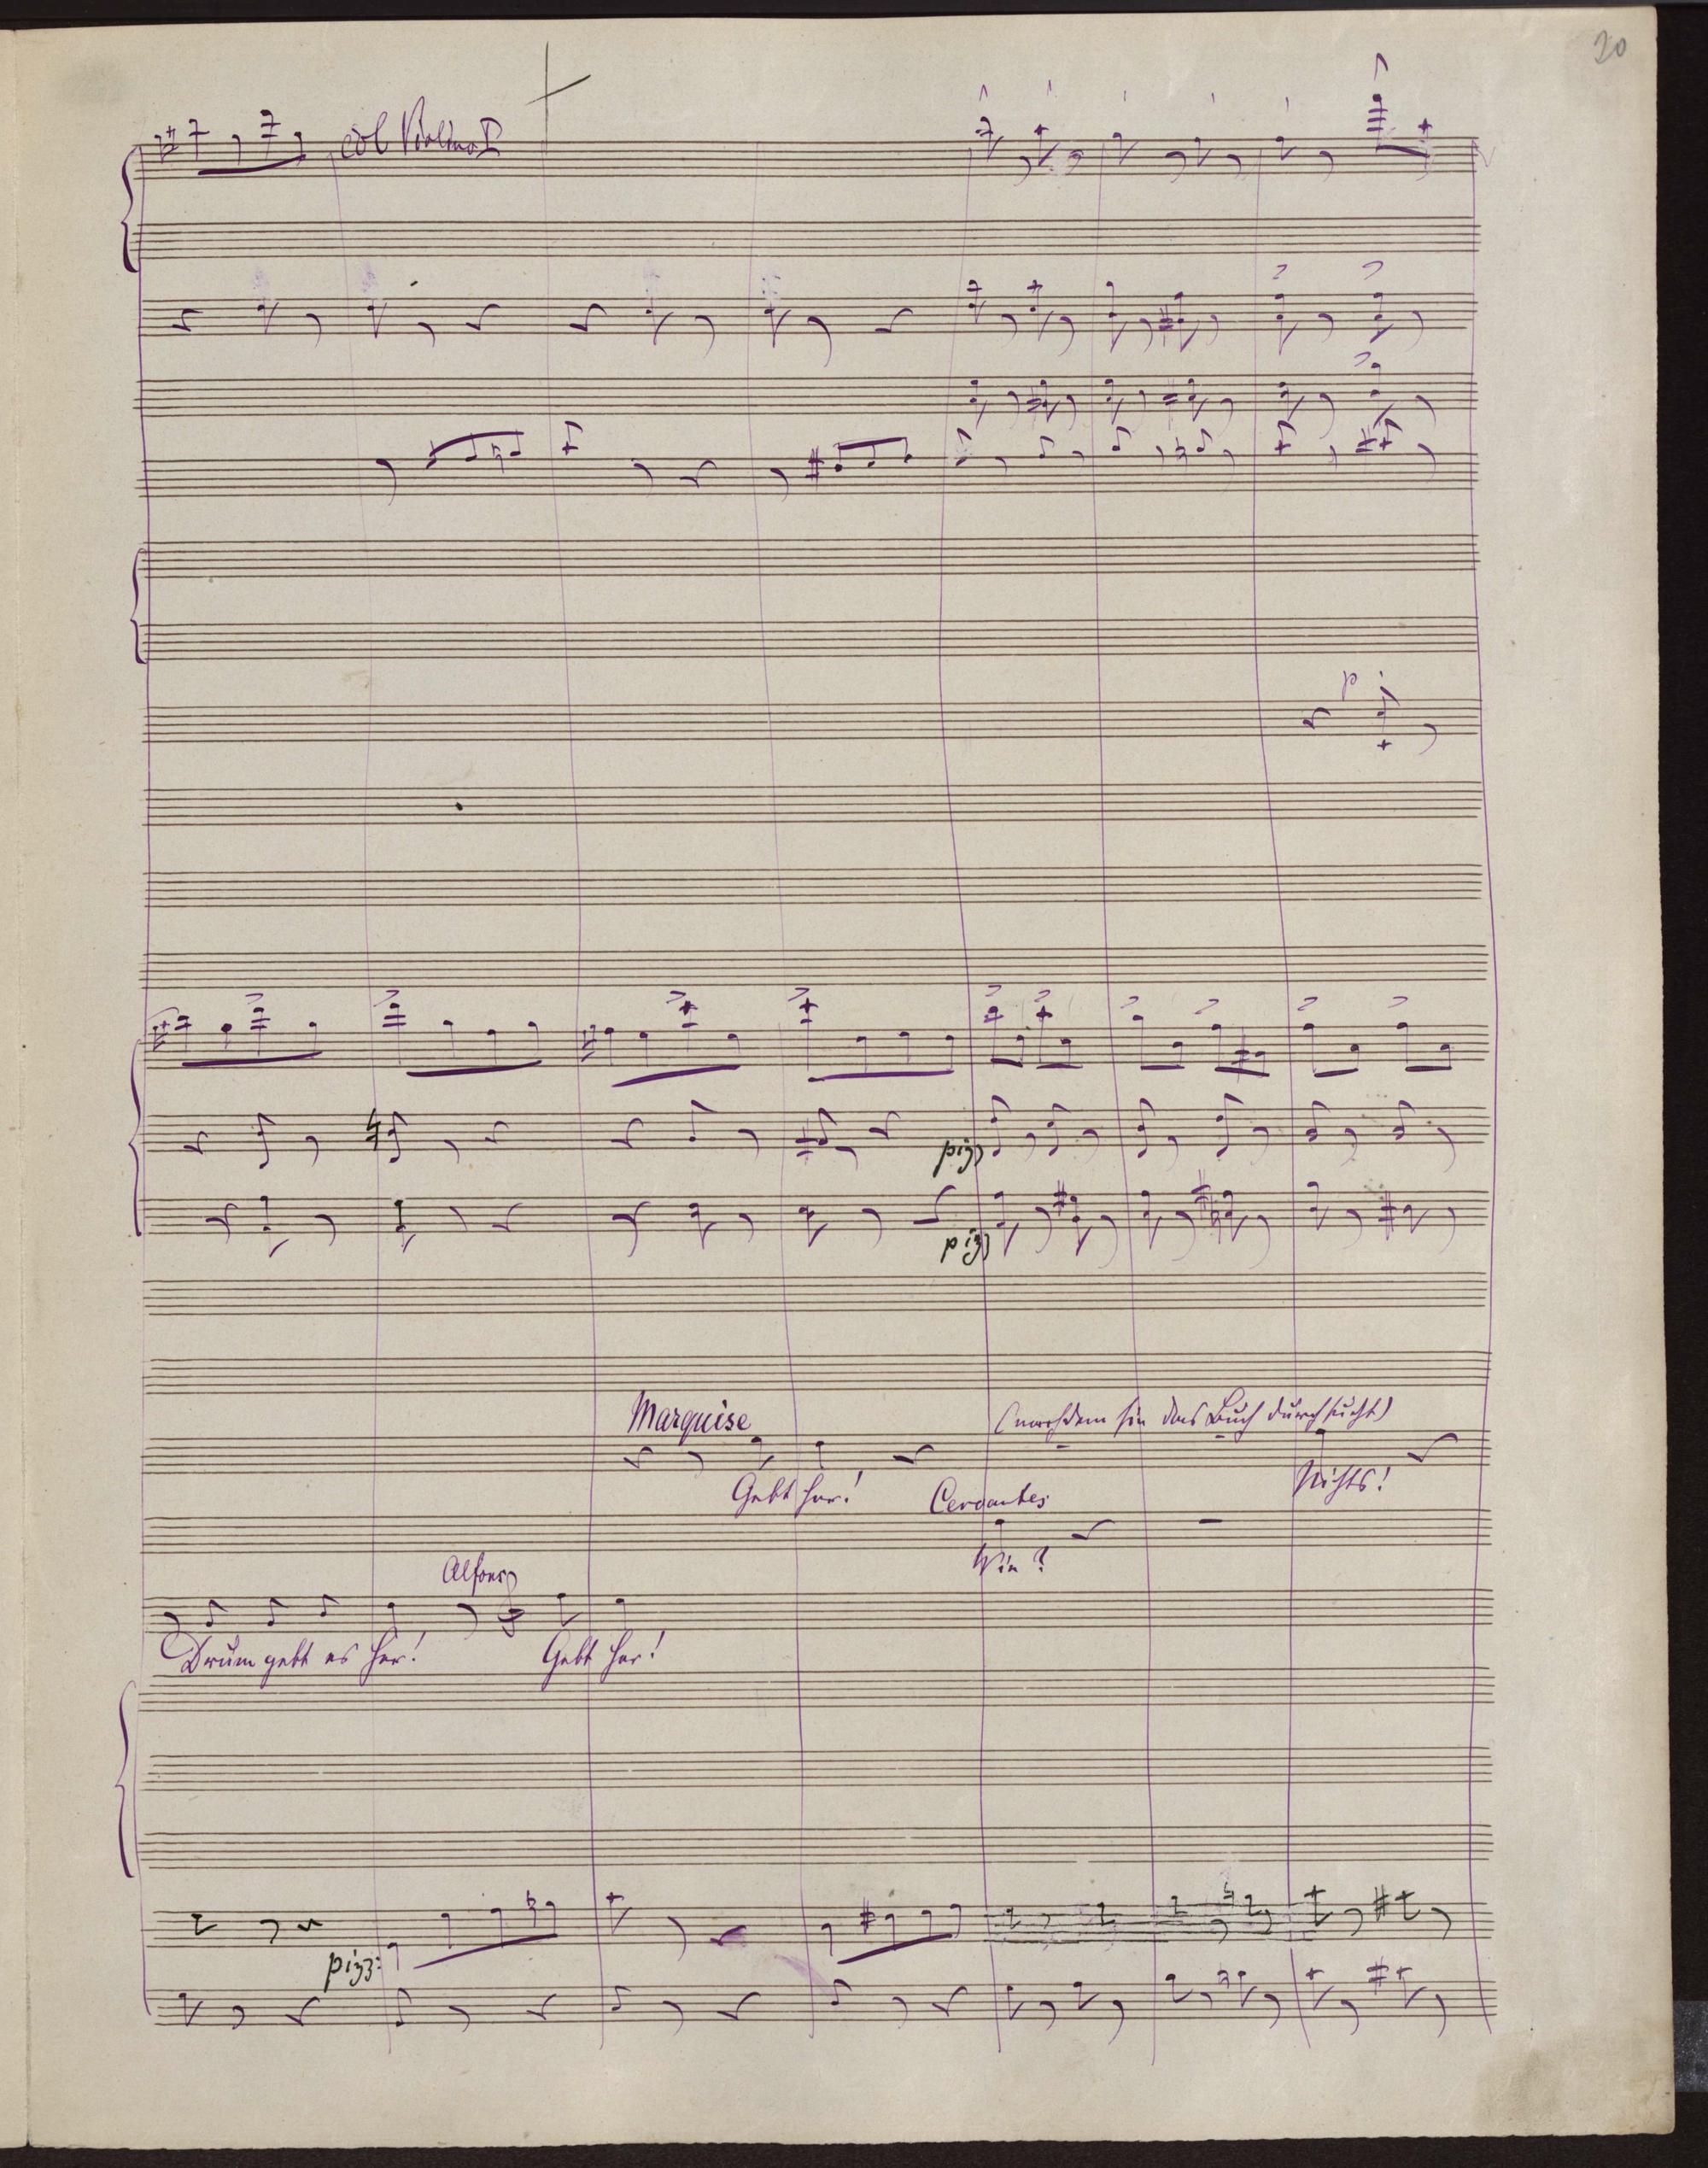 20
col Violino I
p
pizz
pizz
Marquise
(nachdem sie das Buch durchsucht)
Gebt her!
Nichts!
Cervantes
Wie?
Alfonso
Drum gebt es her!
Gebt her!
pizz: